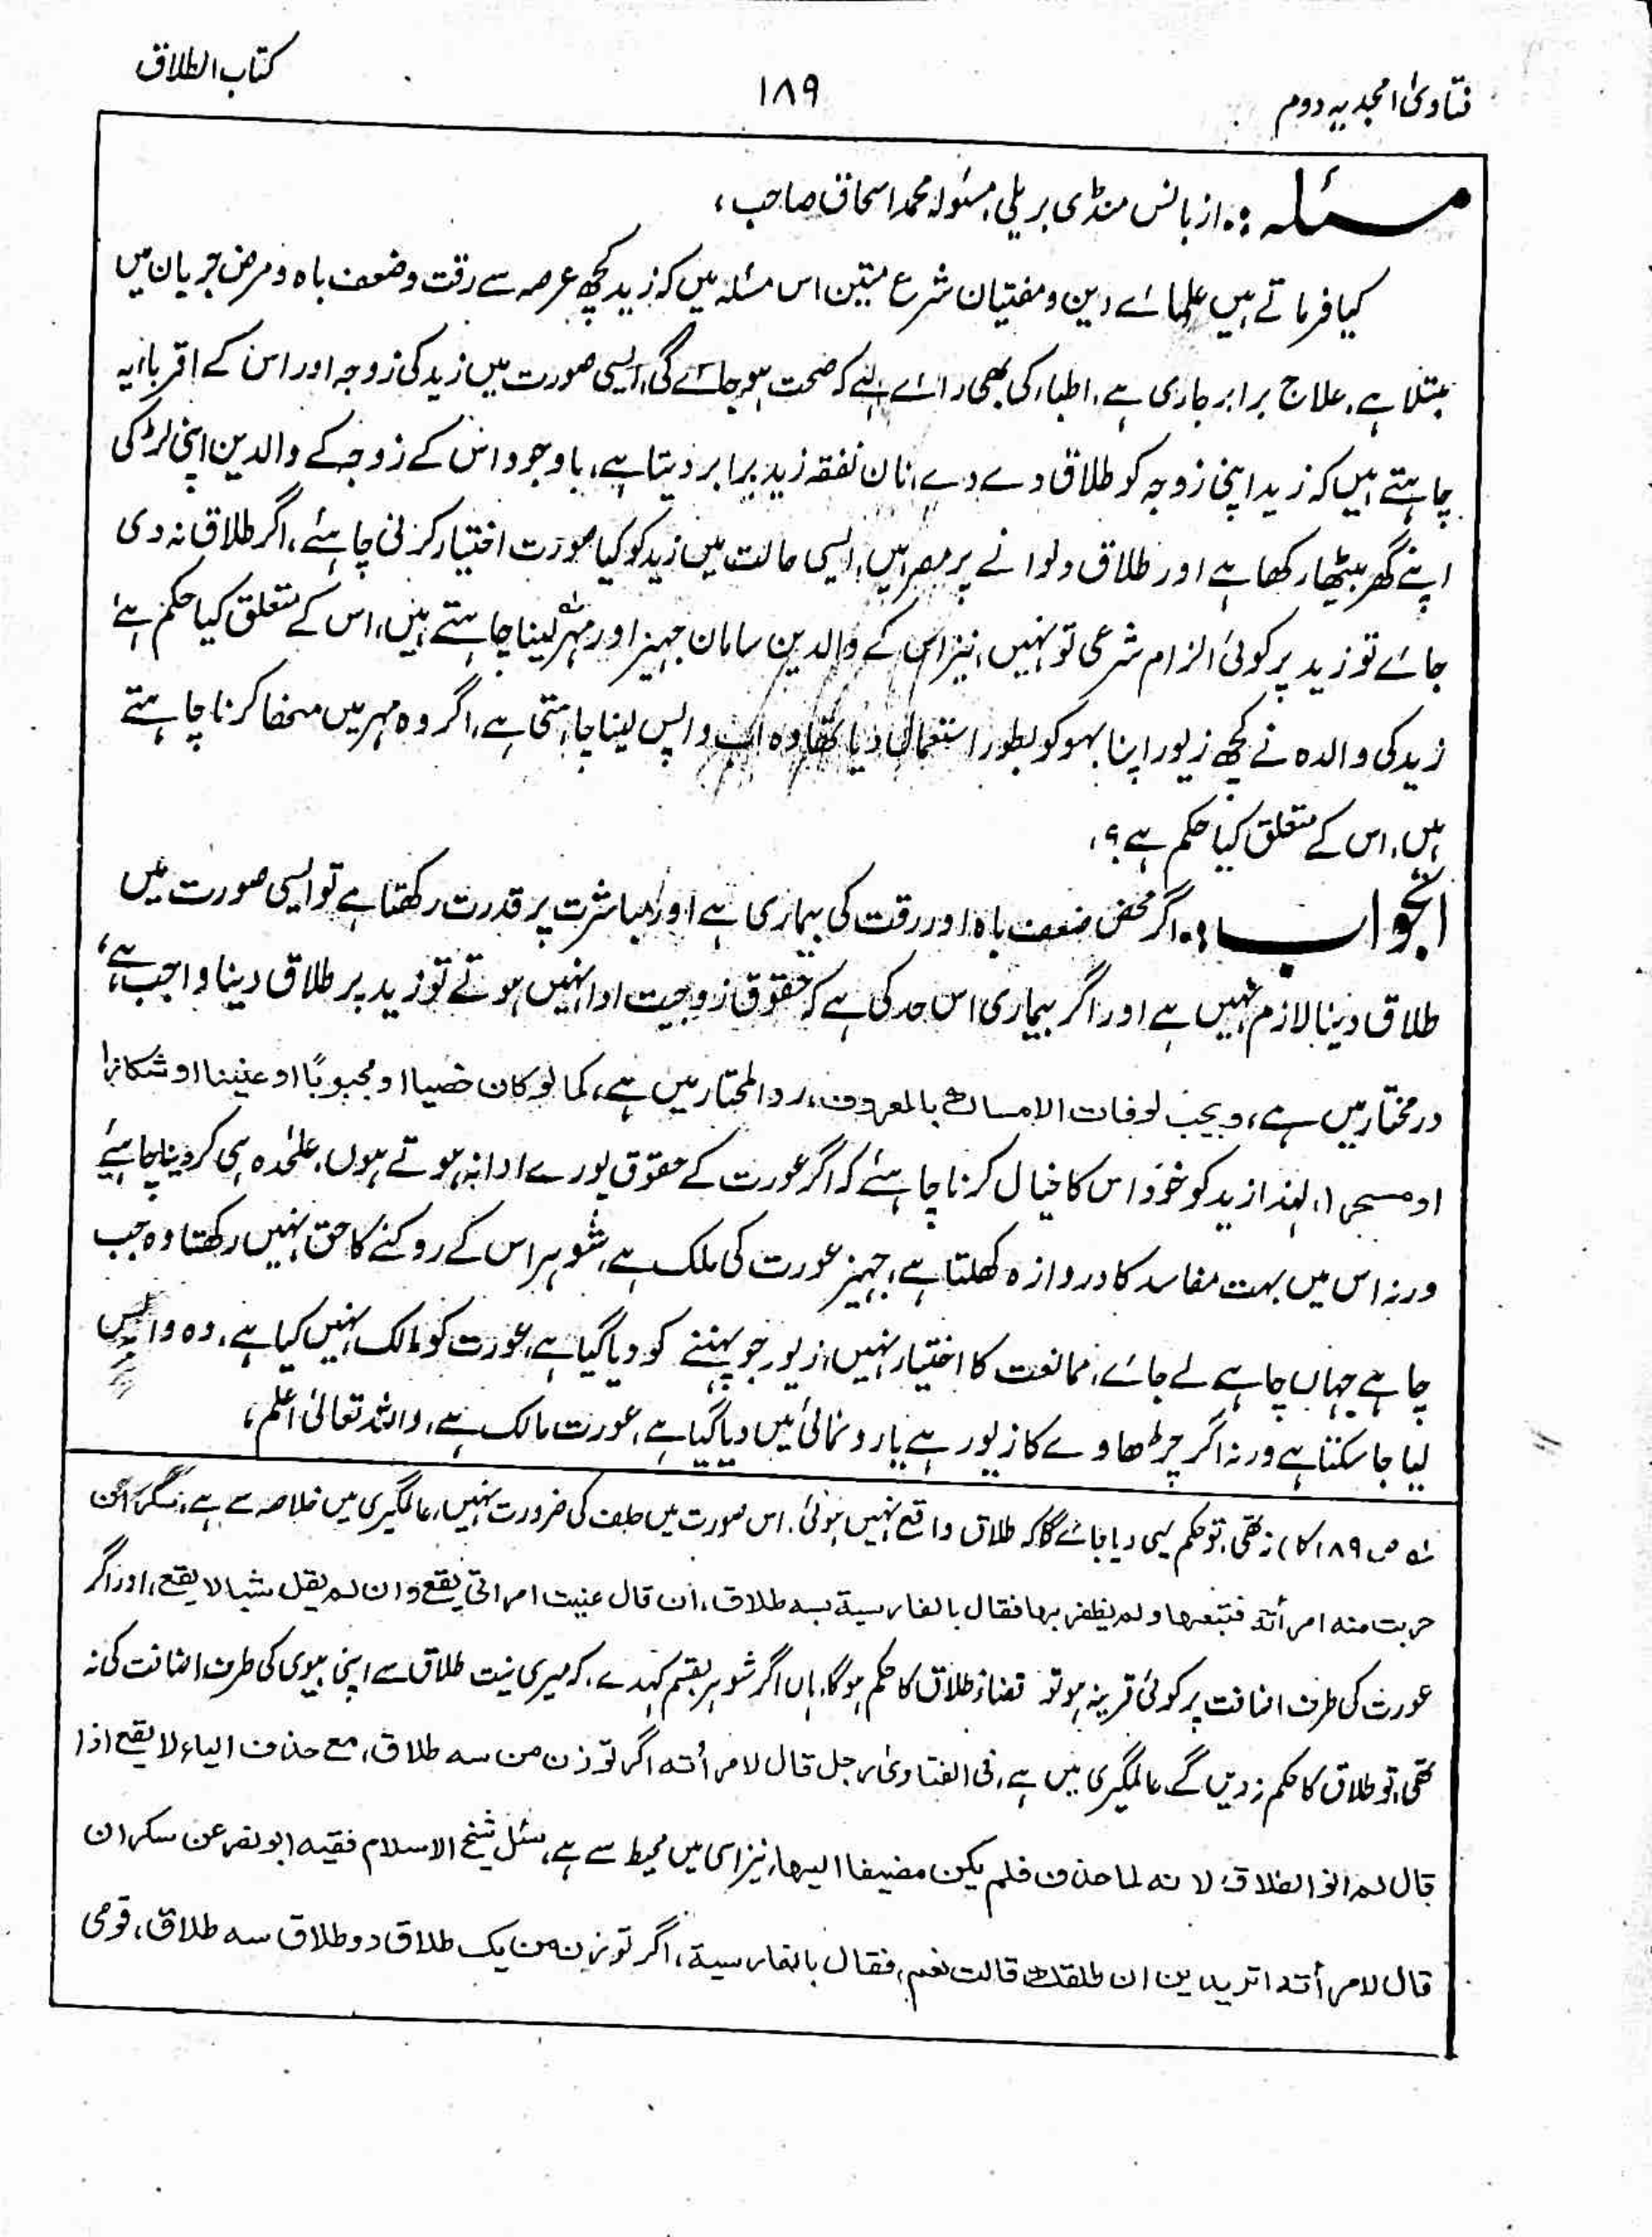 فتاویٰ امجدیہ دوم
۱۸۹
کتاب الطلاق
مسئلہ :۔ از بانس منڈی بریلی، مسئولہ محمد اسحاق صاحب،
کیا فرماتے ہیں علمائے دین و مفتیان شرع متین اس مسئلہ میں کہ زید کچھ عرصہ سے رقت و ضعف باہ و مرض جریان میں
مبتلا ہے، علاج برابر جاری ہے، اطباء کی بھی رائے ہے کہ صحت ہو جائے گی، ایسی صورت میں زید کی زوجہ اور اس کے اقرباء یہ
چاہتے ہیں کہ زید اپنی زوجہ کو طلاق دے دے، نان نفقہ زید برابر دیتا ہے، باوجود اس کے زوجہ کے والدین اپنی لڑکی
اپنے گھر بیٹھا رکھا ہے اور طلاق دلوانے پر مصر ہیں، ایسی حالت میں زید کو کیا صورت اختیار کرنی چاہئے، اگر طلاق نہ دی
جائے تو زید پر کوئی الزام شرعی تو نہیں، نیز اس کے والدین سامان جہیز اور مہر لینا چاہتے ہیں، اس کے متعلق کیا حکم ہے
زید کی والدہ نے کچھ زیور اپنا بہو کو بطور استعمال دیا تھا وہ اب واپس لینا چاہتی ہے، اگر وہ مہر میں محفا کرنا چاہتے
ہیں، اس کے متعلق کیا حکم ہے؟،
الجواب :۔ اگر محض ضعف باہ اور رقت کی بیماری ہے اور مباشرت پر قدرت رکھتا ہے تو ایسی صورت میں
طلاق دینا لازم نہیں ہے اور اگر بیماری اس حد کی ہے کہ حقوق زوجیت ادا نہیں ہوتے تو زید پر طلاق دینا واجب ہے،
درمختار میں ہے، ویجب لوفات الامساک بالمعروف، ردالمحتار میں ہے، کما لو کان خصیا او مجبوبًا او عنینا او شکازا
او مسحرا، لہٰذا زید کو خود اس کا خیال کرنا چاہئے کہ اگر عورت کے حقوق پورے ادا نہ ہوتے ہوں، علٰحدہ ہی کر دینا چاہیئے
ورنہ اس میں بہت مفاسد کا دروازہ کھلتا ہے، جہیز عورت کی ملک ہے، شوہر اس کے روکنے کا حق نہیں رکھتا وہ جب
چاہے جہاں چاہے لے جائے، ممانعت کا اختیار نہیں، زیور جو پہننے کو دیا گیا ہے، عورت کو مالک نہیں کیا ہے، وہ واپس
لیا جا سکتا ہے ورنہ اگر چڑھاوے کا زیور ہے یا رونمائی میں دیا گیا ہے، عورت مالک ہے، واللہ تعالیٰ اعلم،
ص ۱۸۹ کا) نہ تھی، تو حکم یہی دیا جائے گا کہ طلاق واقع نہیں ہوئی. اس صورت میں حلف کی ضرورت نہیں، عالمگیری میں خلاصہ سے ہے، سکران
ھربت منہ امرأتہ فتبعھا ولم یظفر بھا فقال بالفارسیة بسہ طلاق، ان قال عنیت امراتی یقع وان لم یقل شیا لا یقع، اور اگر
عورت کی طرف اضافت پر کوئی قرینہ ہو تو قضاءً طلاق کا حکم ہوگا، ہاں اگر شوہر بقسم کہدے، کہ میری نیت طلاق سے اپنی بیوی کی طرف اضافت کی نہ
تھی، تو طلاق کا حکم نہ دیں گے عالمگیری میں ہے، فی الفتاویٰ رجل قال لامرأتہ اگر تو زن من سہ طلاق، مع حذف الیاء لا یقع اذا
قال لم انو الطلاق لانہ لما حذف فلم یکن مضیفا الیھا، نیز اسی میں محیط سے ہے، سئل شیخ الاسلام فقیہ ابو نصر عن سکران
قال لامرأتہ اتریدین ان طلقک قالت نعم، فقال بالفارسیة، اگر تو زن من یک طلاق دو طلاق سہ طلاق، قومی